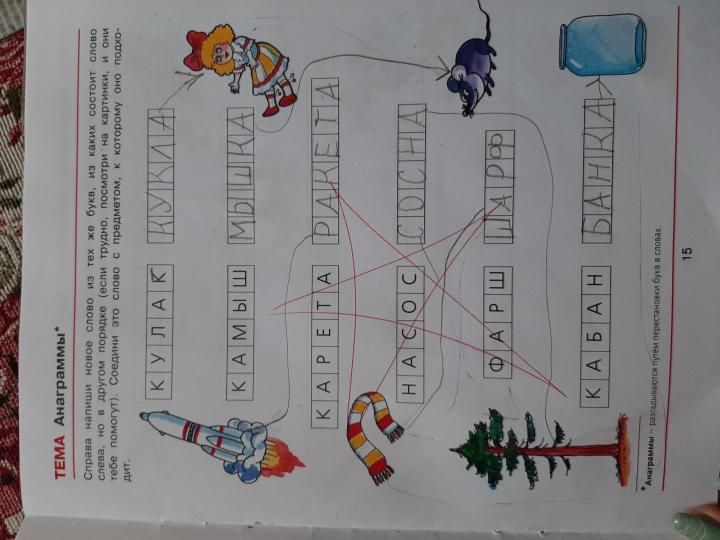 ТЕМА Анаграммы*
Справа напиши новое слово из тех же букв, из каких состоит слово
слева, но в другом порядке (если трудно, посмотри на картинки, и они
тебе помогут). Соедини это слово с предметом, к которому оно подхо-
дит.
КУЛАК КУКЛА
КАМЫШ МЫШКА
КАРЕТА РАКЕТА
НАСОС СОСНА
ФАРШ ШАРФ
КАБАН БАНКА
*Анаграммы – разгадываются путём перестановки букв в словах.
15